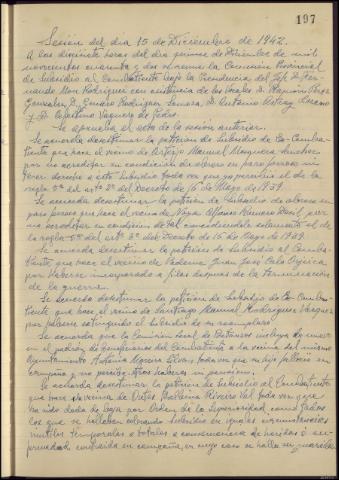 197
Sesion del dia 15 de Diciembre de 1942.
A las diecisiete horas del dia quince de Diciembre de mil
novecientos cuarenta y dos se reune la Comisión Provincial
de Subsidio al Combatiente bajo la Presidencia del Sr. D. Fer-
nando Mon Rodriguez con asistencia de los Vocales D. Ramón
Gonzalez, D. Genaro Rodriguez D. Antonio
y D. Celestino Vaquero de Prado.
Se aprueba el acta de la sesión anterior.
Se acuerda desestimar la petición de Subsidio de Ex-Comba-
tiente que hace el vecino de Arteijo Manuel Minguez Sanchez
por no acreditar su condición de obrero en paro forzoso ni
tener derecho a este Subsidio toda vez que ya percibio el de la
regla 5ª del artº 2º del Decreto de 16 de Mayo de 1939.
Se acuerda desestimar la petición de Subsidio de obrero en
paro forzoso que hace el vecino de Noya Alfonso Romero por
no acreditar su condición de tal considerandole solamente el de
la regla 5ª del artº 2º del Decreto de 16 de Mayo de 1939.
Se acuerda desestimar la petición de Subsidio al Comba-
tiente que hace el vecino de Juan José Cela
por haberse incorporado a filas despues de la terminación
de la guerra.
Se acuerda desestimar la petición de Subsidio de Ex-Comba-
tiente que hace el vecino de Santiago Manuel Rodriguez Vazquez
por haberse extinguido el Subsidio de su reemplazo.
Se acuerda que la Comisión local de Betanzos incluya de nuevo
en el padrón de beneficiarios del Combatiente a la vecina del mismo
Ayuntamiento Antonia Moreira toda vez que su hijo falleció en
campaña y no percibe otros haberes ni pensiones.
Se acuerda desestimar la petición de Subsidio al Combatiente
que hace la vecina de Ordes Balbina Riveiro Val toda vez que
ha sido dada de baja por Orden de la Superioridad como todos
los que se hallaban cobrando Subsidio en iguales circunstancias
mutilos temporales o totales a consecuencia de heridas ó en-
fermedad contraida en campaña, en cuyo caso se halla su